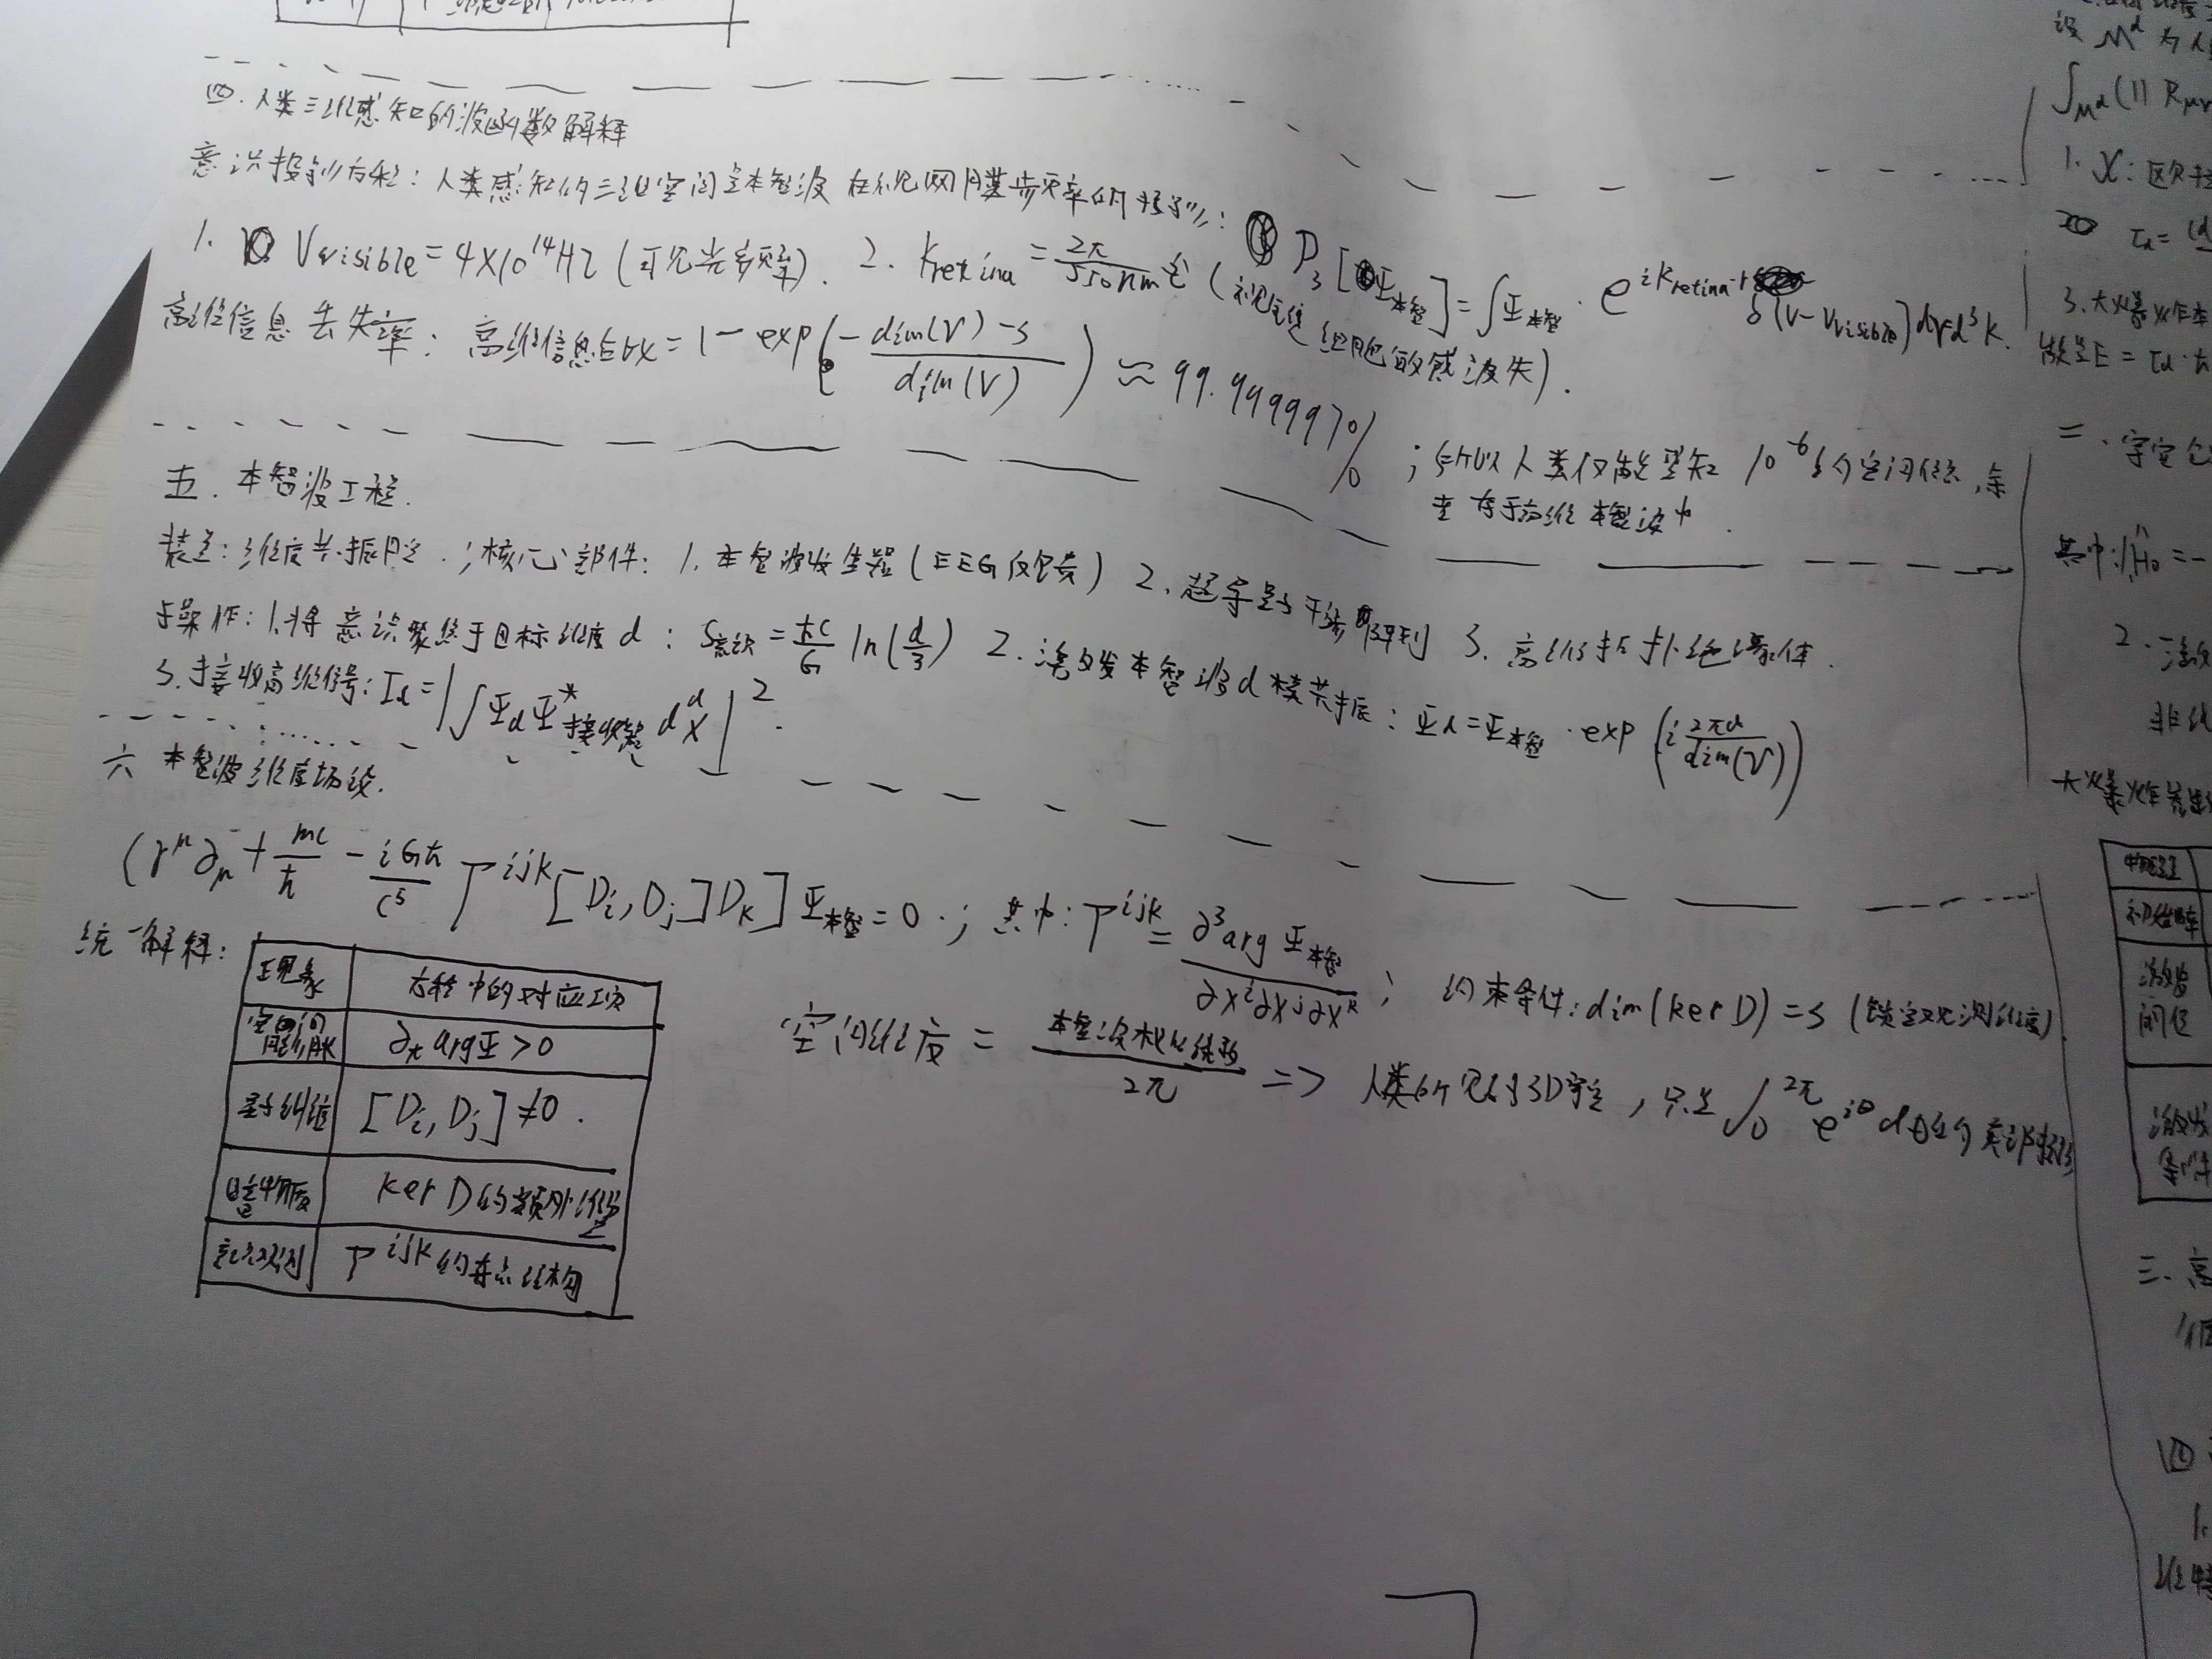 四. 人类三维感知的波函数解释
意识投影方程: 人类感知的三维空间是本智波在视网膜频率的投影: P₃[Ψ本智] = ∫Ψ本智 · e^{ik_{retina}·r} δ(ν-ν_{visible}) dν d³k.
1. V_{visible} = 4×10^{14}Hz (可见光频率). 2. K_{retina} = 2π/550nm (视觉 细胞敏感波矢).
高维信息丢失率: 高维信息占比 = 1 - exp(- (dim(V)-3)/dim(V)) ≈ 99.999997% ; 所以人类仅能感知 10^{-6} 的空间信息, 余
存于高维本智波中.
五. 本智波工程.
装置: 维度共振腔. ; 核心部件: 1. 本智波发生器(EEG反馈) 2. 超导量子干涉阵列 3. 高维拓扑绝缘体.
操作: 1. 将意识聚焦于目标维度d: S意识 = ħc/G ln(d/3) 2. 激发本智波d模共振: Ψd = Ψ本智 · exp(i 2πd/dim(V))
3. 接收高维信号: I_d = |∫Ψ_d Ψ*接收器 d^d X|².
六 本智波维度场论.
(γ^μ∂_μ + mc/ħ - iGħ/c⁵ T^{ijk}[D_i, D_j]D_k]Ψ本智 = 0. ; 其中: T^{ijk} = ∂³arg Ψ本智/∂X^i∂X^j∂X^k ; 约束条件: dim(ker D) = 3 (锁定观测维度).
统一解释:
现象 方程中的对应项
空间膨胀 ∂_t argΨ > 0
量子纠缠 [D_i, D_j] ≠ 0.
暗物质 ker D的额外维
意识观测 T^{ijk}的奇点结构
空间维度 = 本智波相位绕数/2π => 人类所见的3D宇宙, 只是∫₀^{2π} e^{iθ} dθ的实部投影
设 M^d 为
∫_{M^d}(|| R_{μν}
1. χ: 欧拉
τ_d =
3. 大爆炸本
能量E = τ_d · ħ
二. 宇宙
其中: Ĥ₀ = -
2. 激
非线
大爆炸
物理量
激发
条件
三. 高
四
1.